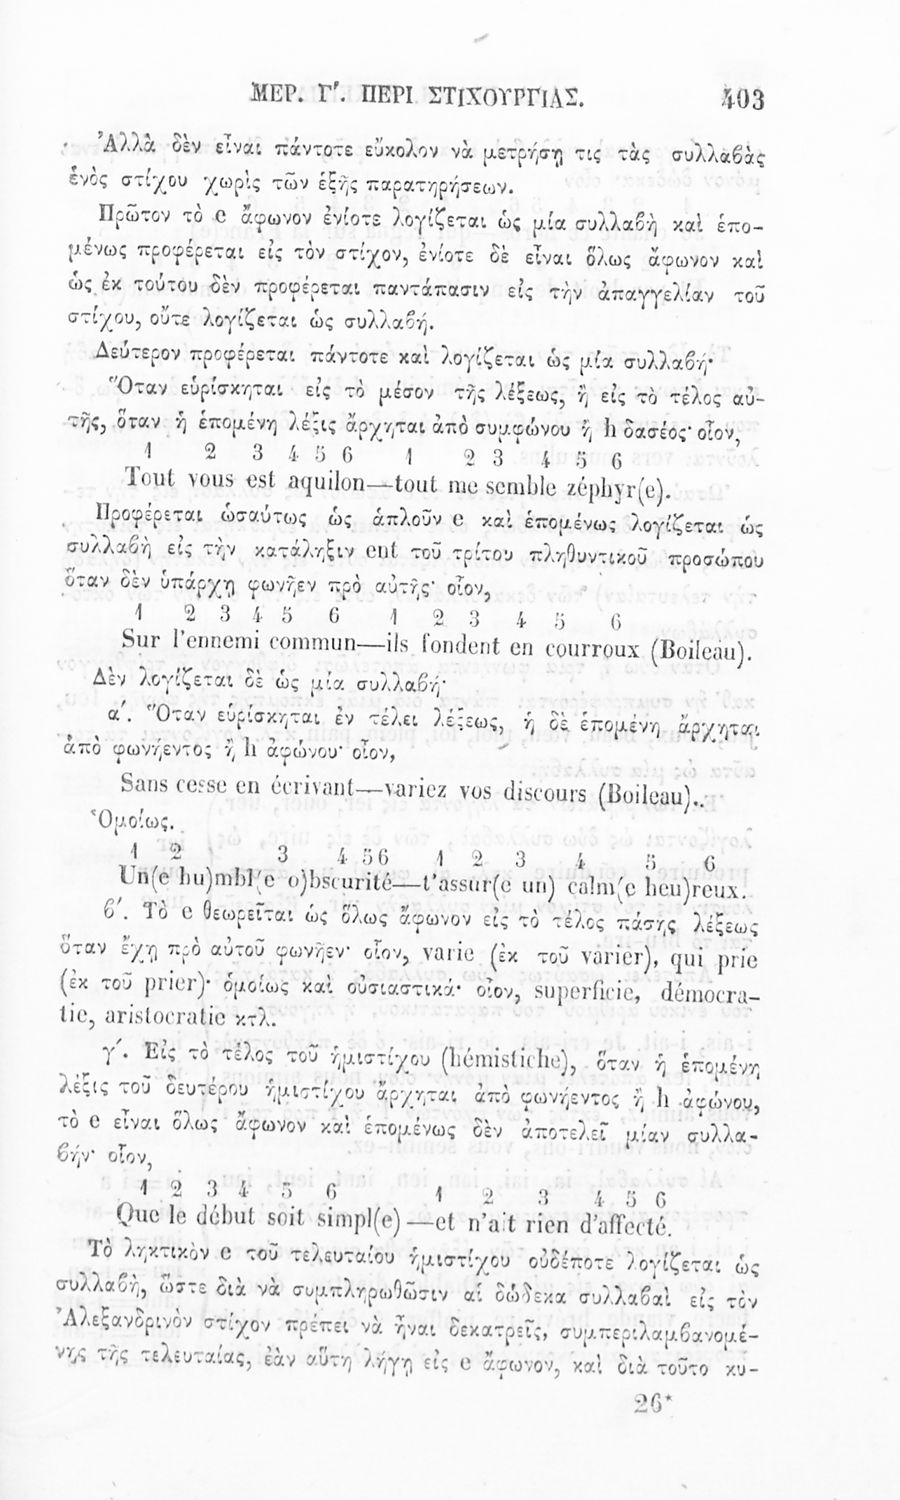 ΜΕΡ. Γʹ. ΠΕΡΙ ΣΤΙΧΟΥΡΓΙΑΣ. 403
Ἀλλὰ δὲν εἶναι πάντοτε εὔκολον νὰ μετρήσῃ τις τὰς συλλαβὰς
ἑνὸς στίχου χωρὶς τῶν ἑξῆς παρατηρήσεων.
Πρῶτον τὸ e ἄφωνον ἐνίοτε λογίζεται ὡς μία συλλαβὴ καὶ ἑπο-
μένως προφέρεται εἰς τὸν στίχον, ἐνίοτε δὲ εἶναι ὅλως ἄφωνον καὶ
ὡς ἐκ τούτου δὲν προφέρεται παντάπασιν εἰς τὴν ἀπαγγελίαν τοῦ
στίχου, οὔτε λογίζεται ὡς συλλαβή.
Δεύτερον προφέρεται πάντοτε καὶ λογίζεται ὡς μία συλλαβή·
Ὅταν εὑρίσκηται εἰς τὸ μέσον τῆς λέξεως, ἢ εἰς τὸ τέλος αὐ-
τῆς, ὅταν ἡ ἑπομένη λέξις ἄρχηται ἀπὸ συμφώνου ἢ h δασέος· οἷον,
1 2 3 4 5 6 1 2 3 4 5 6
Tout vous est aquilon—tout me semble zéphyr(e).
Προφέρεται ὡσαύτως ὡς ἁπλοῦν e καὶ ἑπομένως λογίζεται ὡς
συλλαβὴ εἰς τὴν κατάληξιν ent τοῦ τρίτου πληθυντικοῦ προσώπου
ὅταν δὲν ὑπάρχῃ φωνῆεν πρὸ αὐτῆς· οἷον,
1 2 3 4 5 6 1 2 3 4 5 6
Sur l'ennemi commun—ils fondent en courroux (Boileau).
Δὲν λογίζεται δὲ ὡς μία συλλαβή·
αʹ. Ὅταν εὑρίσκηται ἐν τέλει λέξεως, ἡ δὲ ἑπομένη ἄρχηται
ἀπὸ φωνήεντος ἢ h ἀφώνου· οἷον,
Sans cesse en écrivant—variez vos discours (Boileau).
Ὁμοίως.
1 2 3 4 5 6 1 2 3 4 5 6
Un(e hu)mbl(e o)bscurité—t'assur(e un) calm(e heu)reux.
βʹ. Τὸ e θεωρεῖται ὡς ὅλως ἄφωνον εἰς τὸ τέλος πάσης λέξεως
ὅταν ἔχῃ πρὸ αὐτοῦ φωνῆεν· οἷον, varie (ἐκ τοῦ varier), qui prie
(ἐκ τοῦ prier)· ὁμοίως καὶ οὐσιαστικά· οἷον, superficie, démocra-
tie, aristocratie κτλ.
γʹ. Εἰς τὸ τέλος τοῦ ἡμιστίχου (hémistiche), ὅταν ἡ ἑπομένη
λέξις τοῦ δευτέρου ἡμιστίχου ἄρχηται ἀπὸ φωνήεντος ἢ h ἀφώνου,
τὸ e εἶναι ὅλως ἄφωνον καὶ ἑπομένως δὲν ἀποτελεῖ μίαν συλλα-
βήν· οἷον,
1 2 3 4 5 6 1 2 3 4 5 6
Que le début soit simpl(e)—et n'ait rien d'affecté.
Τὸ ληκτικὸν e τοῦ τελευταίου ἡμιστίχου οὐδέποτε λογίζεται ὡς
συλλαβὴ, ὥστε διὰ νὰ συμπληρωθῶσιν αἱ δώδεκα συλλαβαὶ εἰς τὸν
Ἀλεξανδρινὸν στίχον πρέπει νὰ ἦναι δεκατρεῖς, συμπεριλαμβανομέ-
νης τῆς τελευταίας, ἐὰν αὕτη λήγῃ εἰς e ἄφωνον, καὶ διὰ τοῦτο κυ-
26*